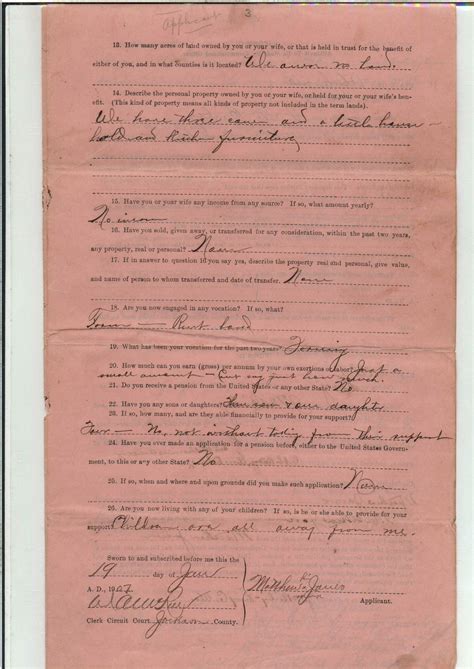 Applicant
3
13. How many acres of land owned by you or your wife, or that is held in trust for the benefit of
either of you, and in what Counties is it located? We own no land
14. Describe the personal property owned by you or your wife, or held for your or your wife's ben-
efit. (This kind of property means all kinds of property not included in the term lands).
We have three cows and a little house
hold and Kichn furniture
15. Have you or your wife any income from any source? If so, what amount yearly?
No incom
16. Have you sold, given away, or transferred for any consideration, within the past two years,
any property, real or personal? None
17. If in answer to question 16 you say yes, describe the property real and personal, give value,
and name of person to whom transferred and date of transfer. None
18. Are you now engaged in any vocation? If so, what?
Farm — Rent land
19. What has been your vocation for the past two years? Farming
20. How much can you earn (gross) per annum by your own exertions or labor? Just a
small amount — Cant say just how much.
21. Do you receive a pension from the United States or any other State? No
22. Have you any sons or daughters? Three sons & one daughter
23. If so, how many, and are they able financially to provide for your support?
Four — No, not in shape today from their support
24. Have you ever made an application for a pension before, either to the United States Govern-
ment, to this or any other State? No
25. If so, when and where and upon grounds did you make such application? None
26. Are you now living with any of your children? If so, is he or she able to provide for your
support? Children are all away from me.
Sworn to and subscribed before me this the
19 day of Jan
A. D., 1927
Clerk Circuit Court, Jackson County.
his
James
mark
Applicant.